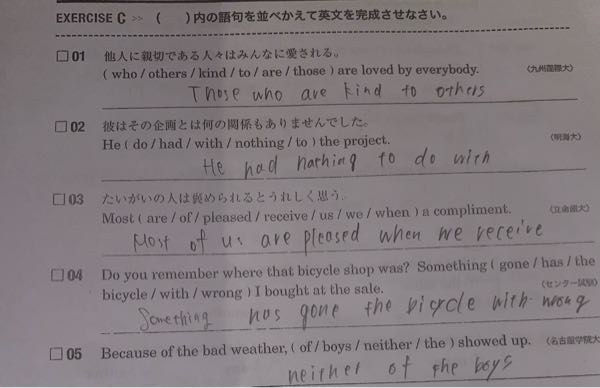 EXERCISE C >> (　　)内の語句を並べかえて英文を完成させなさい。
□01 他人に親切である人々はみんなに愛される。
( who / others / kind / to / are / those ) are loved by everybody. 〈九州国際大〉
Those who are kind to others
□02 彼はその企画とは何の関係もありませんでした。
He ( do / had / with / nothing / to ) the project. 〈明海大〉
He had nothing to do with
□03 たいがいの人は褒められるとうれしく思う。
Most ( are / of / pleased / receive / us / we / when ) a compliment. 〈立命館大〉
Most of us are pleased when we receive
□04 Do you remember where that bicycle shop was? Something ( gone / has / the
bicycle / with / wrong ) I bought at the sale. 〈センター試験〉
Something has gone the bicycle with wrong
□05 Because of the bad weather, ( of / boys / neither / the ) showed up. 〈名古屋学院大
neither of the boys